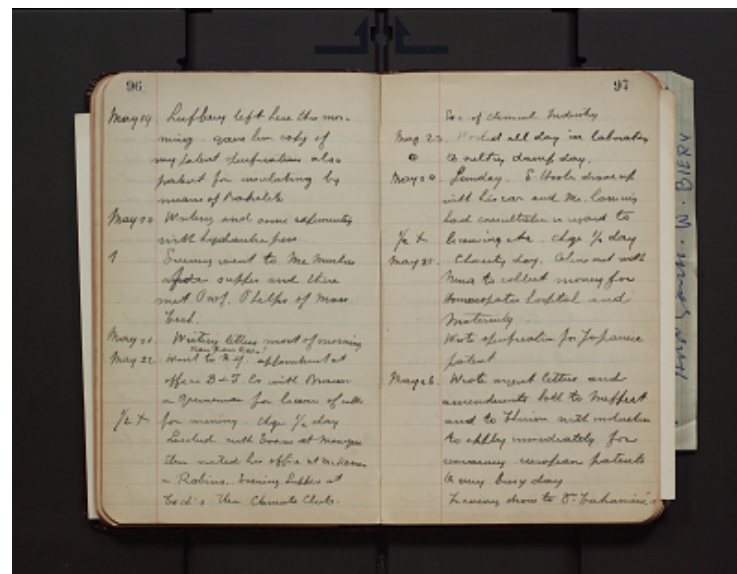 96
May 19 left here this mor-
ning. gave him copy of
my patent specification also
patent for insulating by
means of Bakelite
May 20 Writing and some experiments
with hydraulic press
Evening went to Mc
supper and there
met Prof. Phelps of Mass.
Tech.
May 21. Writing letters most of morning
May 22 Went to N.Y. appointment at
office B & S. Co with
for license of
1/2 x for mining. Chge 1/2 day
Lunched with Evans at
then visited his office at McKesson
& Robins. Evening supper at
then Chemists Club.
97
Soc. of Chemical Industry
May 23. Worked all day in laboratory
A sultry damp day.
May 24. Sunday. E. Hooker drove up
with his car and Mr.
had consultation in regard to
1/2 x licensing etc. Chge 1/2 day
May 25. Charity day. Celine out with
Nina to collect money for
Homeopatic hospital and
Maternity.
Wrote specification for Japanese
patent
May 26. Wrote urgent letters and
amendments both to Meffert
and to with instructions
to apply immediately for
european patents
A very busy day
Evening drove to Dr.
W. BIERY